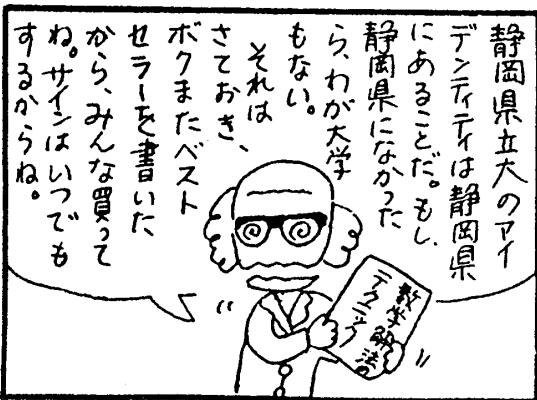 静岡県立大のアイ
デンティティは静岡県
にあることだ。もし、
静岡県になかった
ら、わが大学
もない。
それは
さておき、
ボクまたベスト
セラーを書いた
から、みんな買って
ね。サインはいつでも
するからね。
数学解法の
テクニック